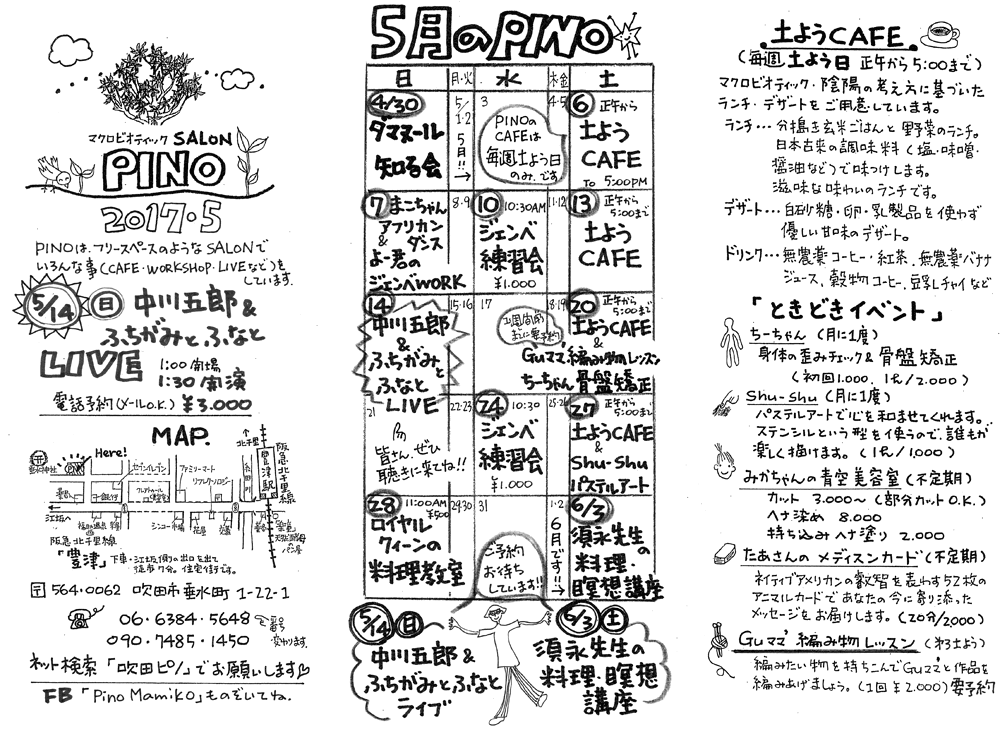 マクロビオティック SALON
PINO
2017・5
PINOは、フリースペースのようなSALONで
いろんな事(CAFE・WORKSHOP・LIVEなど)を
しています。
5/14 日 中川五郎&
ふちがみとふなと
LIVE 1:00開場
1:30開演
電話予約(メールO.K.) ¥3.000
MAP.
Here!
PINO
セブンイレブン
ファミリーマート
リフレクソロジー
北千里
豊津駅
阪急北千里線
江坂へ
阪急北千里線
「豊津」下車・江坂側の出口を出て
徒歩7分。住宅街です。
〒564・0062 吹田市垂水町1-22-1
06・6384・5648
090・7485・1450
番号
変わります。
ネット検索「吹田ピノ」でお願いします
FB「Pino Mamiko」ものぞいてね。
5月のPINO
日 月・火 水 木・金 土
4/30
ダマヌール
知る会
5/1・2
5月!!
3
PINOの
CAFEは
毎週土よう日
のみ、です
4・5
6 正午から
土よう
CAFE
To 5:00PM
7 まこちゃん
アフリカン
&ダンス
よー君の
ジェンベWORK
8・9
10 10:30AM
ジェンベ
練習会
¥1.000
11・12
13 正午から
5:00まで
土よう
CAFE
14
中川五郎
&
ふちがみと
ふなと
LIVE
15・16
17
1週間前
までに要予約
18・19
20 正午から
5:00まで
土ようCAFE
&
Guママ編み物レッスン
ちーちゃん骨盤矯正
21
皆さん、ぜひ
聴きに来てね!!
22・23
24 10:30
ジェンベ
練習会
¥1.000
25・26
27 正午から
5:00まで
土ようCAFE
&
Shu-Shu
パステルアート
28 11:00AM
¥500
ロイヤル
クィーンの
料理教室
29・30
31
ご予約
お待ち
しています!!
1・2
6月です!!
6/3
須永先生の
料理・
瞑想講座
5/14 日
中川五郎&
ふちがみとふなと
ライブ
6/3 土
須永先生の
料理・瞑想
講座
土ようCAFE
(毎週土よう日 正午から5:00まで)
マクロビオティック・陰陽の考え方に基づいた
ランチ・デザートをご用意しています。
ランチ…分搗き玄米ごはんと野菜のランチ。
日本古来の調味料(塩・味噌・
醤油など)で味つけします。
滋味な味わいのランチです。
デザート…白砂糖・卵・乳製品を使わず
優しい甘味のデザート。
ドリンク…無農薬コーヒー・紅茶、無農薬バナナ
ジュース、穀物コーヒー、豆乳レチャイなど
「ときどきイベント」
ちーちゃん(月に1度)
身体の歪みチェック&骨盤矯正
(初回1.000、1h/2.000)
Shu-Shu(月に1度)
パステルアートで心を和ませてくれます。
ステンシルという型を使うので、誰もが
楽しく描けます。(1h/1,000)
みかちゃんの青空美容室(不定期)
カット 3.000~(部分カットO.K.)
ヘナ染め 8.000
持ち込みヘナ塗り 2.000
たあさんのメディスンカード(不定期)
ネイティブアメリカンの叡智を表わす52枚の
アニマルカードであなたの今に寄り添った
メッセージをお届けします。(20分/2000)
Guママ 編み物レッスン(第3土よう)
編みたい物を持ちこんでGuママと作品を
編みあげましょう。(1回¥2.000)要予約